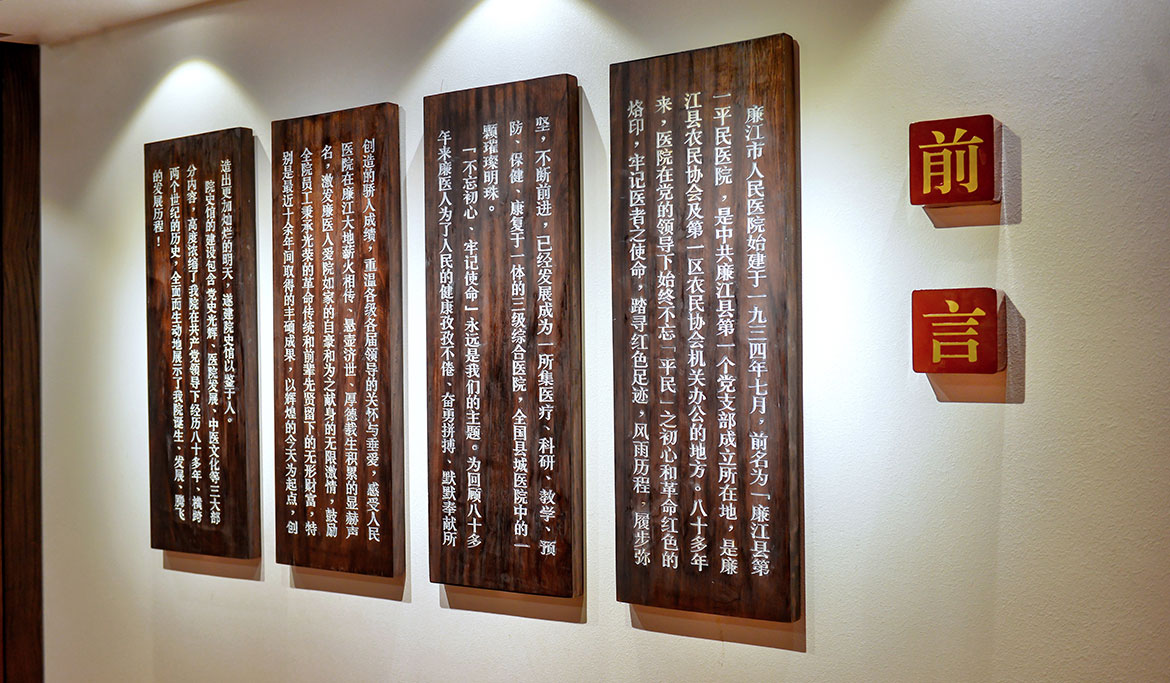 前
言
廉江市人民医院始建于一九三四年七月，前名为「廉江县第
一平民医院，是中共廉江县第一个党支部成立所在地，是廉
江县农民协会及第一区农民协会机关办公的地方。八十多年
来，医院在党的领导下始终不忘「平民」之初心和革命红色的
烙印，牢记医者之使命，踏寻红色足迹，风雨历程，履步弥
坚，不断前进，已经发展成为一所集医疗、科研、教学、预
防、保健、康复于一体的三级综合医院，全国县城医院中的一
颗璀璨明珠。
「不忘初心、牢记使命」永远是我们的主题。为回顾八十多
年来廉医人为了人民的健康孜孜不倦、奋勇拼搏、默默奉献所
创造的骄人成绩，重温各级各届领导的关怀与垂爱，感受人民
医院在廉江大地薪火相传、悬壶济世、厚德载生积累的显赫声
名，激发廉医人爱院如家的自豪和为之献身的无限激情，鼓励
全院员工秉承光荣的革命传统和前辈先贤留下的无形财富，特
别是最近十余年间取得的丰硕成果，以辉煌的今天为起点，创
造出更加灿烂的明天，遂建院史馆以鉴于人。
院史馆的建设包含党史光辉、医院发展、中医文化等三大部
分内容，高度浓缩了我院在共产党领导下经历八十多年、横跨
两个世纪的历史，全面而生动地展示了我院诞生、发展、腾飞
的发展历程！